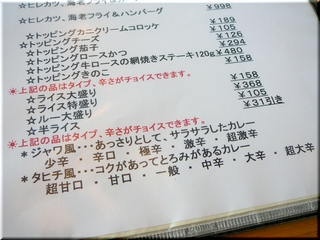 ☆ヒレカツ、海老フライ＆ハンバーグ ¥998
☆トッピングカニクリームコロッケ ¥189
☆トッピングチーズ ¥105
☆トッピング茄子 ¥126
☆トッピングロースかつ ¥294
☆トッピング牛ロースの網焼きステーキ120g ¥480
☆トッピングきのこ ¥158
※上記の品はタイプ、辛さがチョイスできます。
☆ライス大盛り ¥158
☆ライス特盛り ¥368
☆ルー大盛り ¥105
☆半ライス ¥31引き
※上記の品はタイプ、辛さがチョイスできます。
＊ジャワ風・・・あっさりとして、サラサラしたカレー
少辛 ・ 辛口 ・ 極辛 ・ 激辛 ・ 超激辛
＊タヒチ風・・・コクがあってとろみがあるカレー
超甘口 ・ 甘口 ・ 一般 ・ 中辛 ・ 大辛 ・ 超大辛